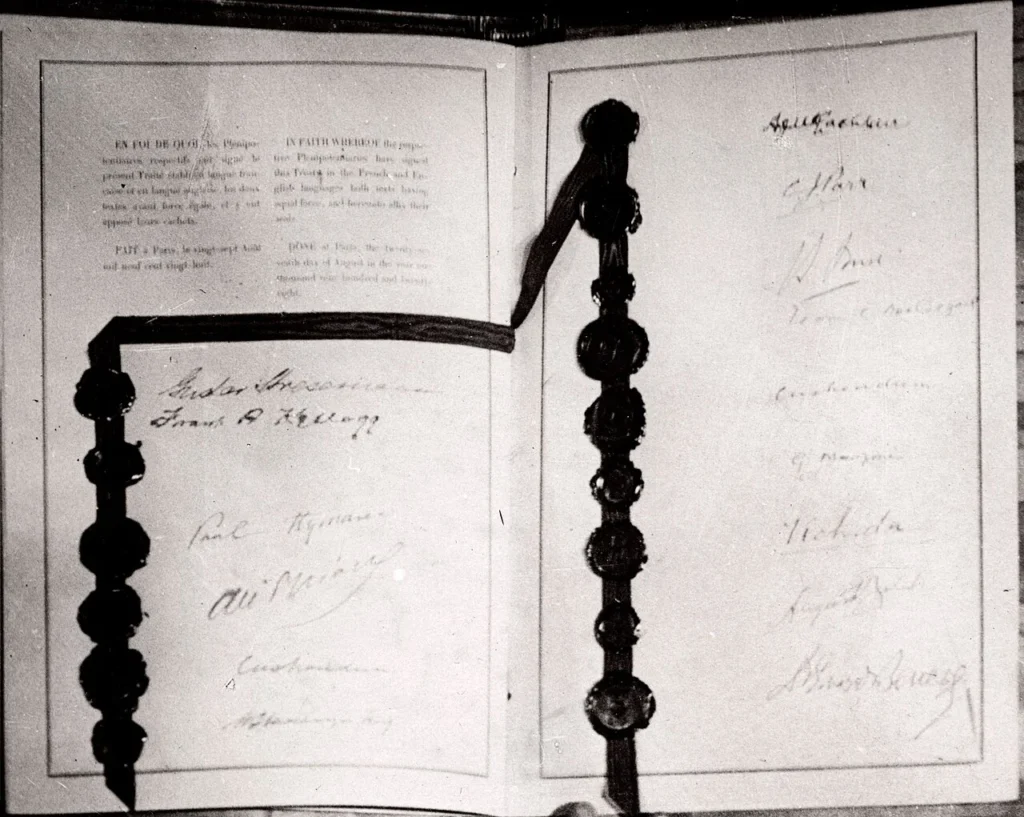 EN FOI DE QUOI, les Plénipo-
tentiaires respectifs ont signé le
présent Traité établi en langue fran-
çaise et en langue anglaise, les deux
textes ayant force égale, et y ont
apposé leurs cachets.
FAIT à Paris, le vingt-sept Août
mil neuf cent vingt-huit.
IN FAITH WHEREOF the respec-
tive Plenipotentiaries have signed
this Treaty in the French and En-
glish languages both texts having
equal force, and hereunto affix their
seals.
DONE at Paris, the twenty-se-
venth day of August in the year one
thousand nine hundred and twenty-
eight.
Gustav Stresemann
Frank B Kellogg
Paul Hymans
Ari Briand
Cushendun
W L Mackenzie King
A J McLachlan
C J Parr
Cushendun
Uchida
August